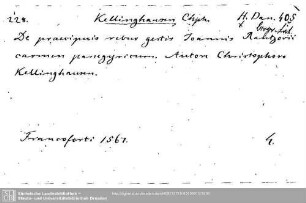 228. Kellinghausen Chph. H. Dan. 405
De praecipuis rebus gestis Joannis Rantzovii
carmen panegyricum. Autore Christophoro
Kellinghausen.
Francoforti 1567. 4.
Sächsische Landesbibliothek -
Staats- und Universitätsbibliothek Dresden